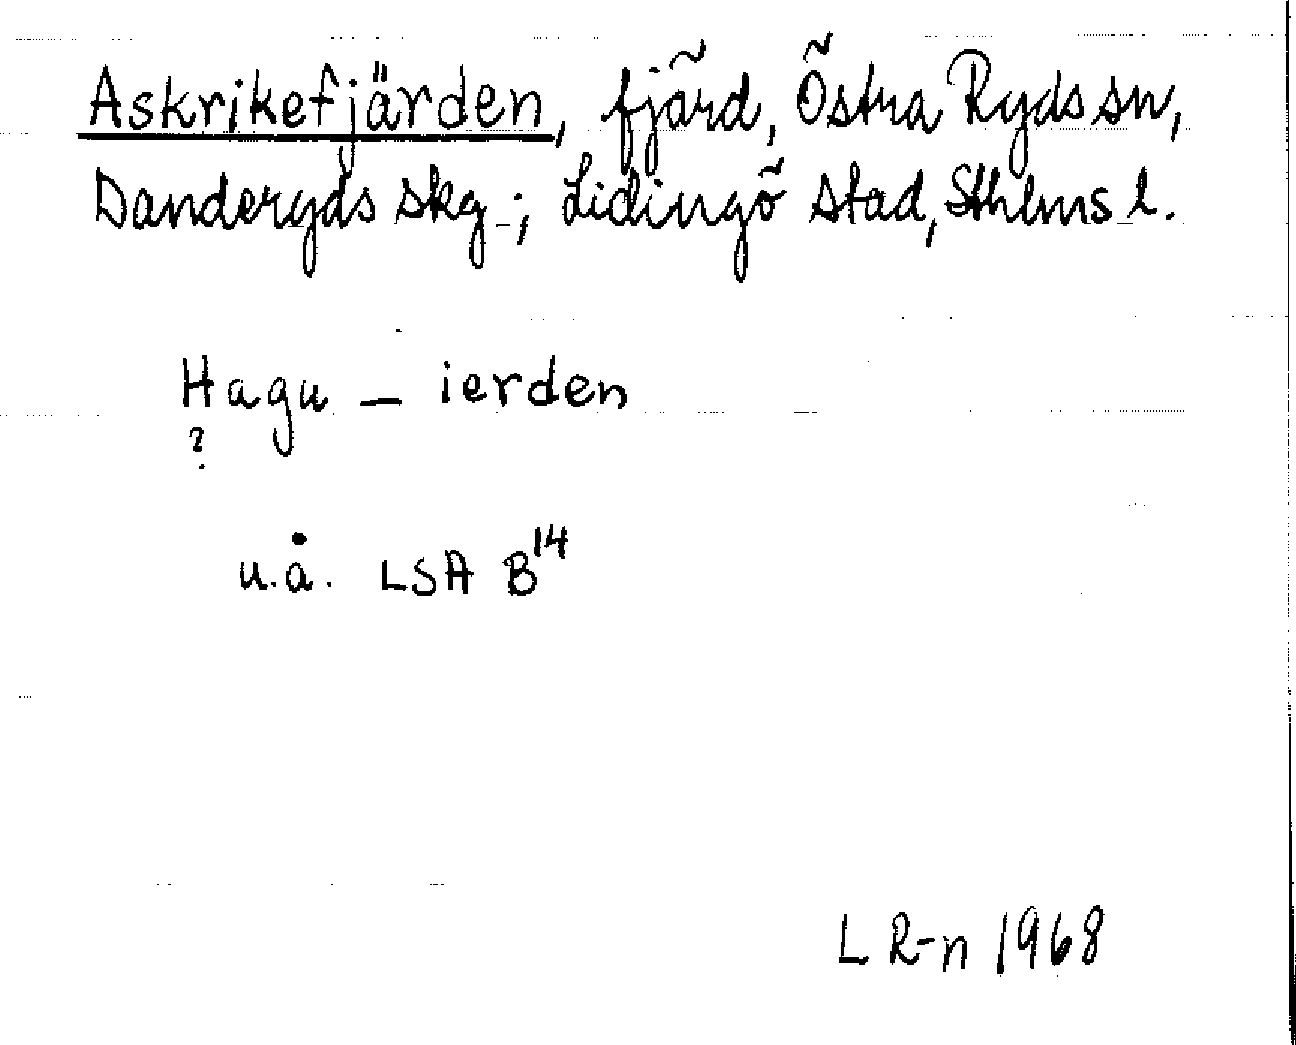 Askrikefjärden, fjärd, Östra Ryds sn,
Danderyds skg; Lidingö stad, Sthlms l.
Hagu — ierden
?
u.å. LSA B14
L R-n 1968